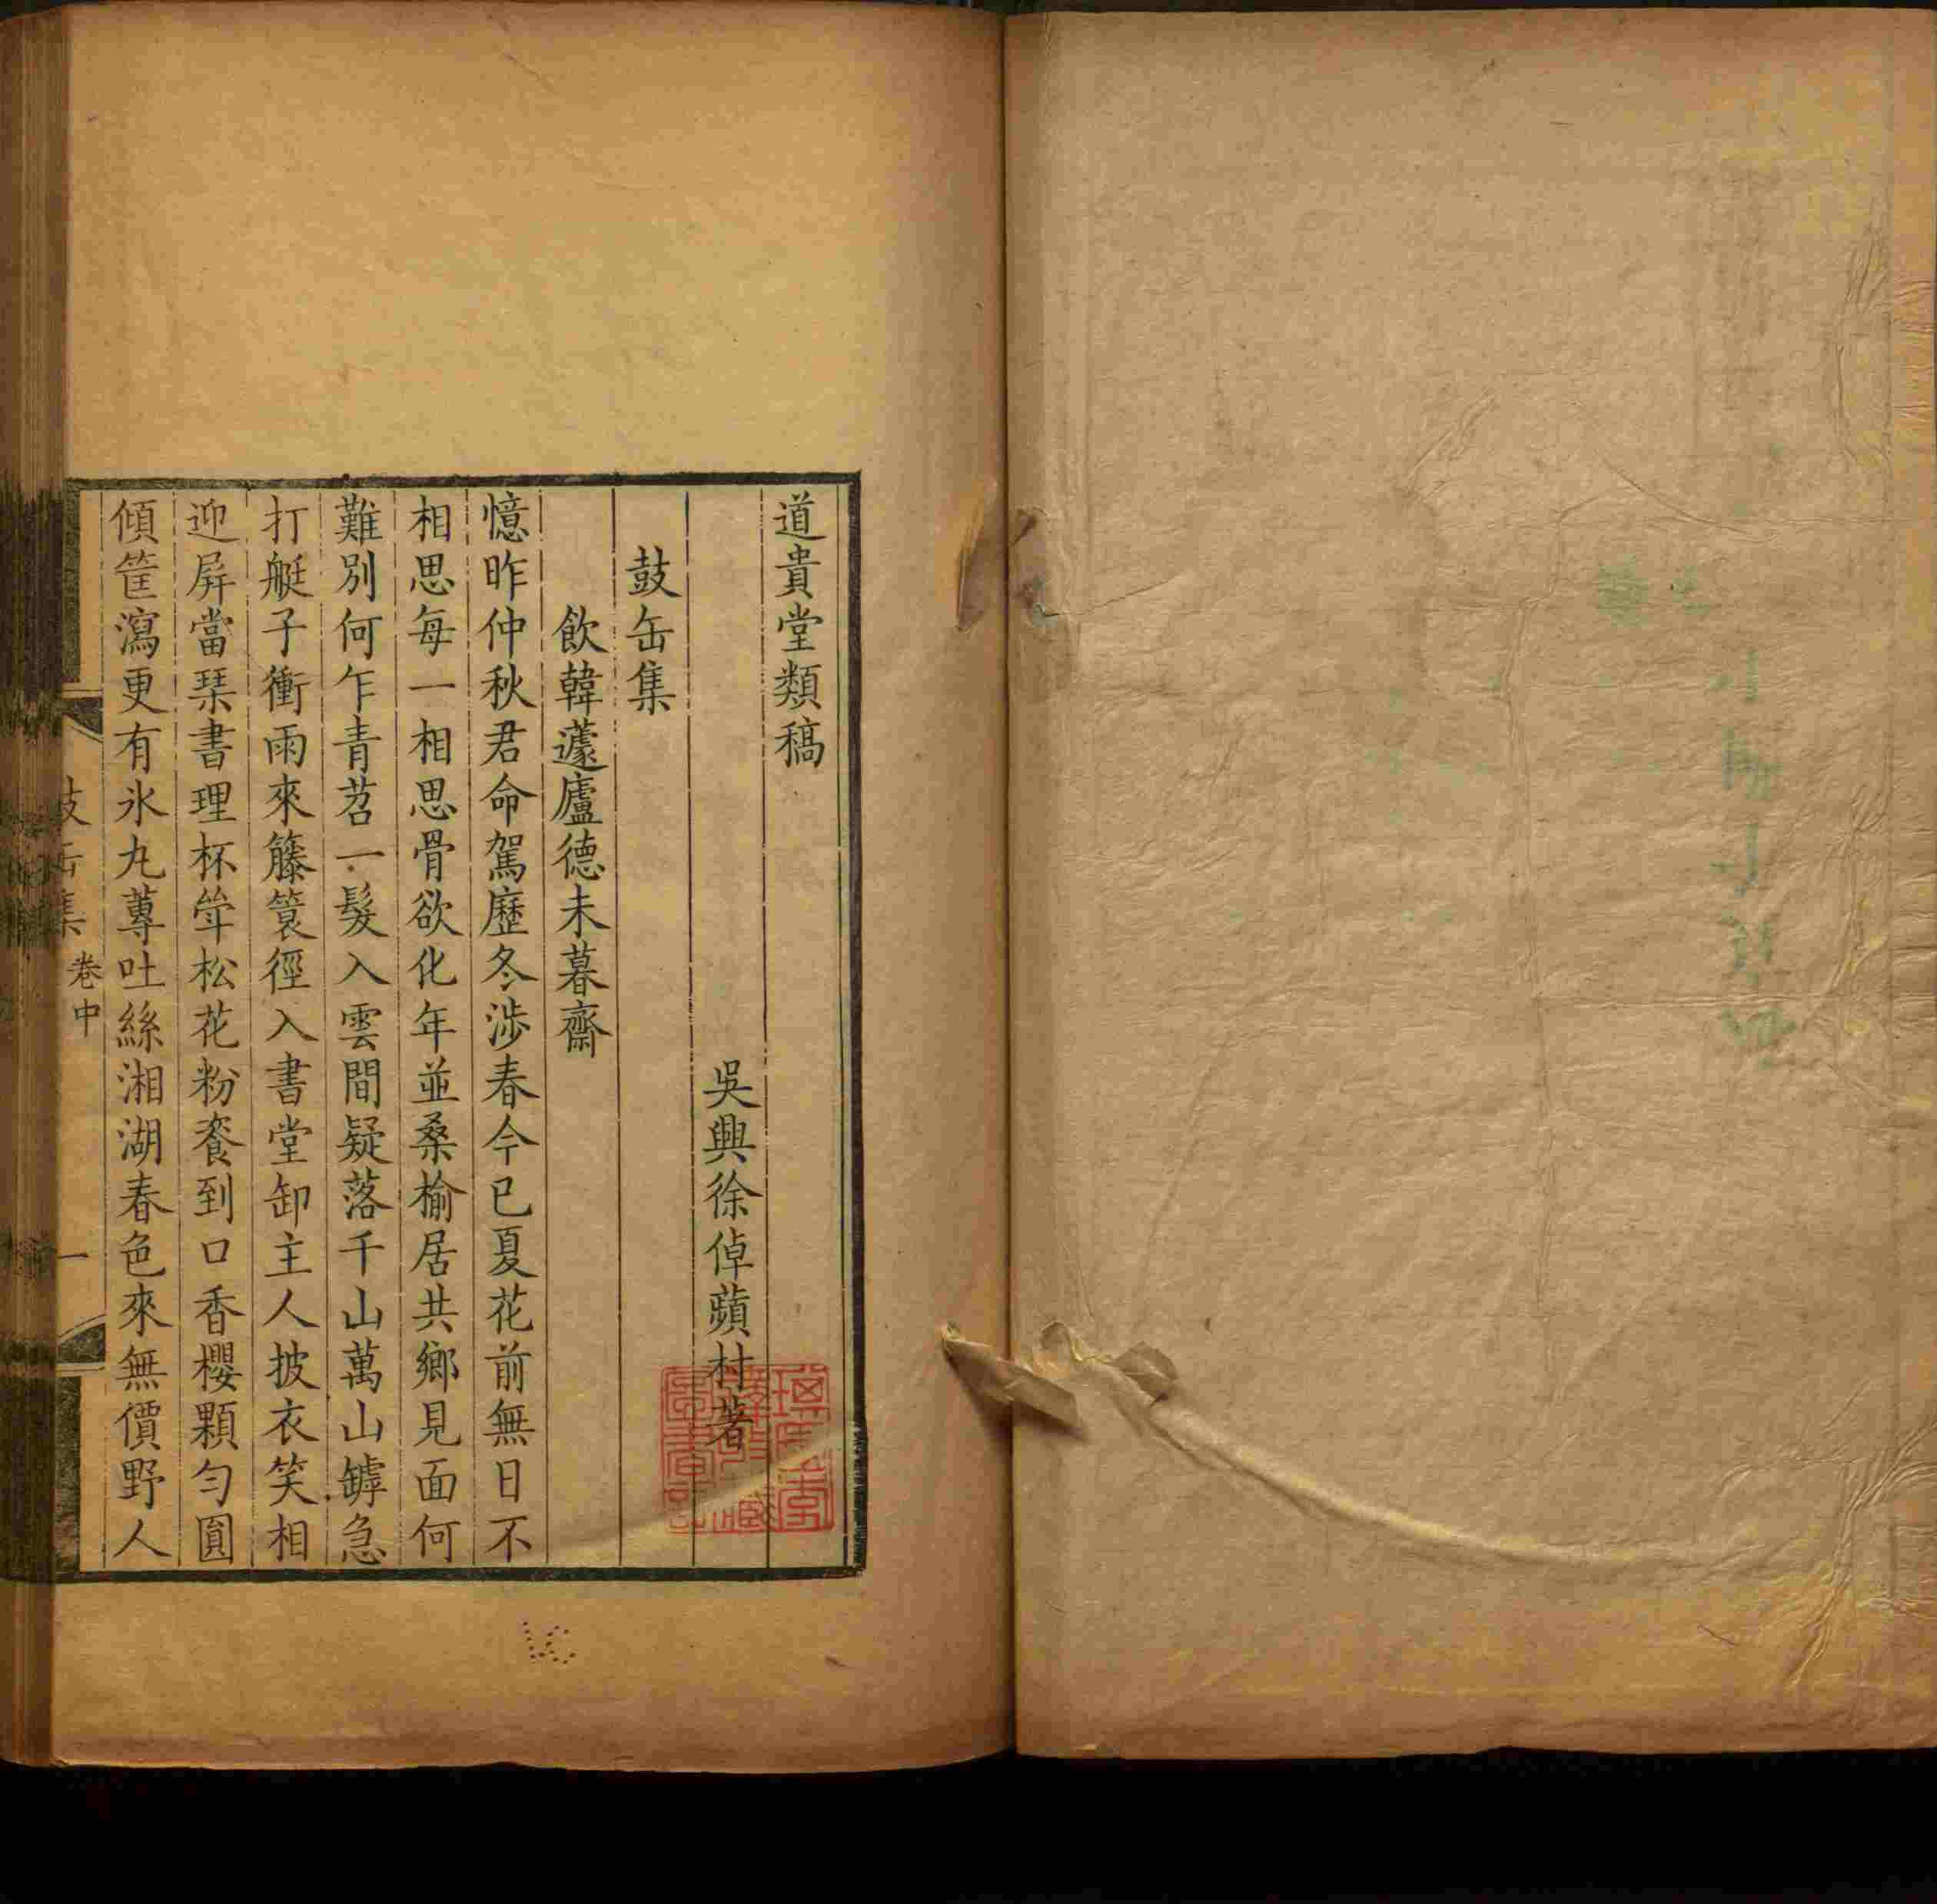 道貴堂類稿
吳興徐倬蘋村著
鼓缶集
飲韓蘧廬德未暮齋
憶昨仲秋君命駕歷冬涉春今已夏花前無日不
相思每一相思骨欲化年並桑榆居共鄉見面何
難別何乍青苕一髮入雲間疑落千山萬山罅急
打艇子衝雨來籐簑徑入書堂卸主人披衣笑相
迎屏當琹書理杯斝松花粉餈到口香櫻顆勻圓
傾筐瀉更有氷丸蓴吐絲湘湖春色來無價野人
鼓缶集 卷中 一